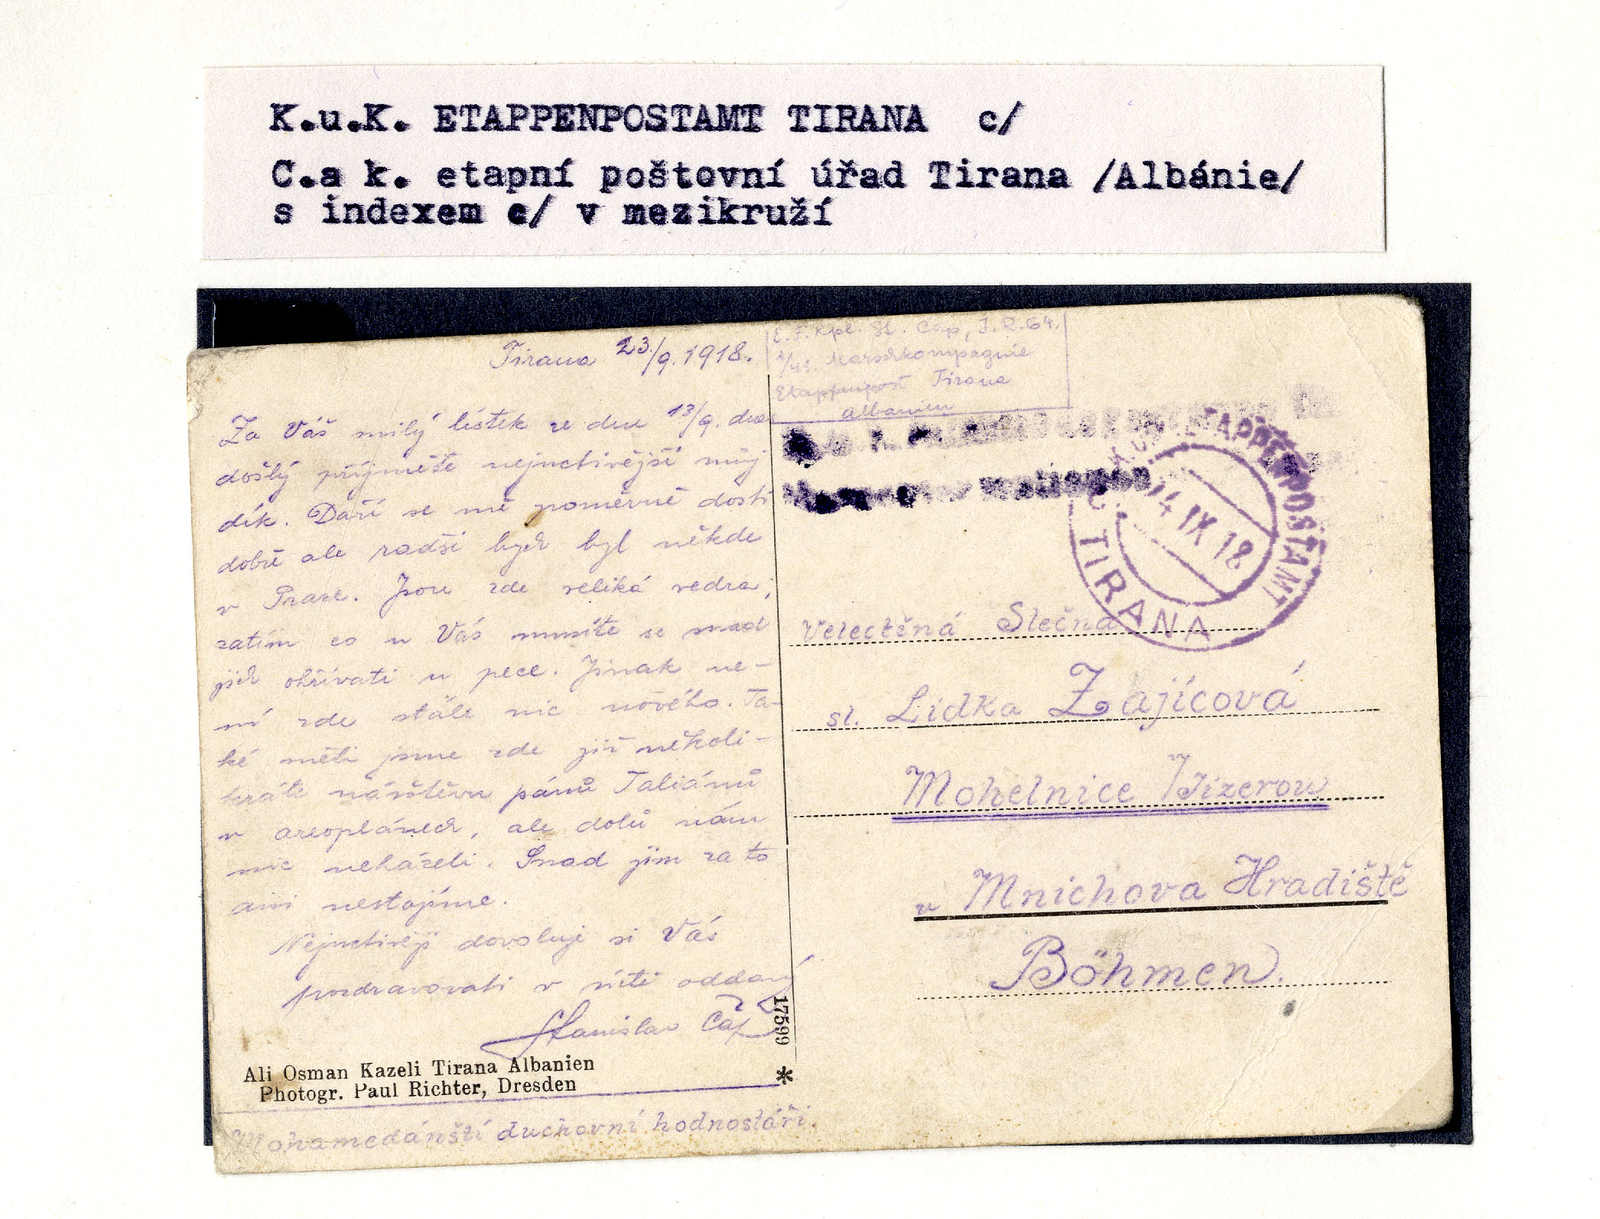 K.u.K. ETAPPENPOSTAMT TIRANA c/
C.a k. etapní poštovní úřad Tirana /Albánie/
s indexem c/ v mezikruží
Tirana 23./9. 1918.
Za Váš milý lístek ze dne 13/9. dnes
došlý přijměte nejuctivější můj
dík. Daří se mě poměrně dosti
dobře ale radši bych byl někde
v Praze. Jsou zde veliká vedra,
zatím co u Vás musíte se snad
jich ohřívati u pece. Jinak ne-
ní zde stále nic nového. Ta-
ké měli jsme zde již několi-
kráte návštěvu pánů Taliánů
v aeroplánech, ale dolů nám
nic neházeli. Snad jim za to
ani nestojíme.
Nejuctivěji dovoluje si Vás
pozdravovati v úctě oddaný
Stanislav Čáp
Ali Osman Kazeli Tirana Albanien
Photogr. Paul Richter, Dresden
Mohamedánští duchovní hodnostáři.
17599
*
E. F. Kpl. St. Čáp, I. R. 64.
Marschkompagnie
Etappenpost Tirana
Albanien
K.u.K. ETAPPENPOSTAMT
24 IX 18
C TIRANA
Velectěná Slečna
sl. Lidka Zajícová
Mohelnice /Jizerou
u Mnichova Hradiště
Böhmen.